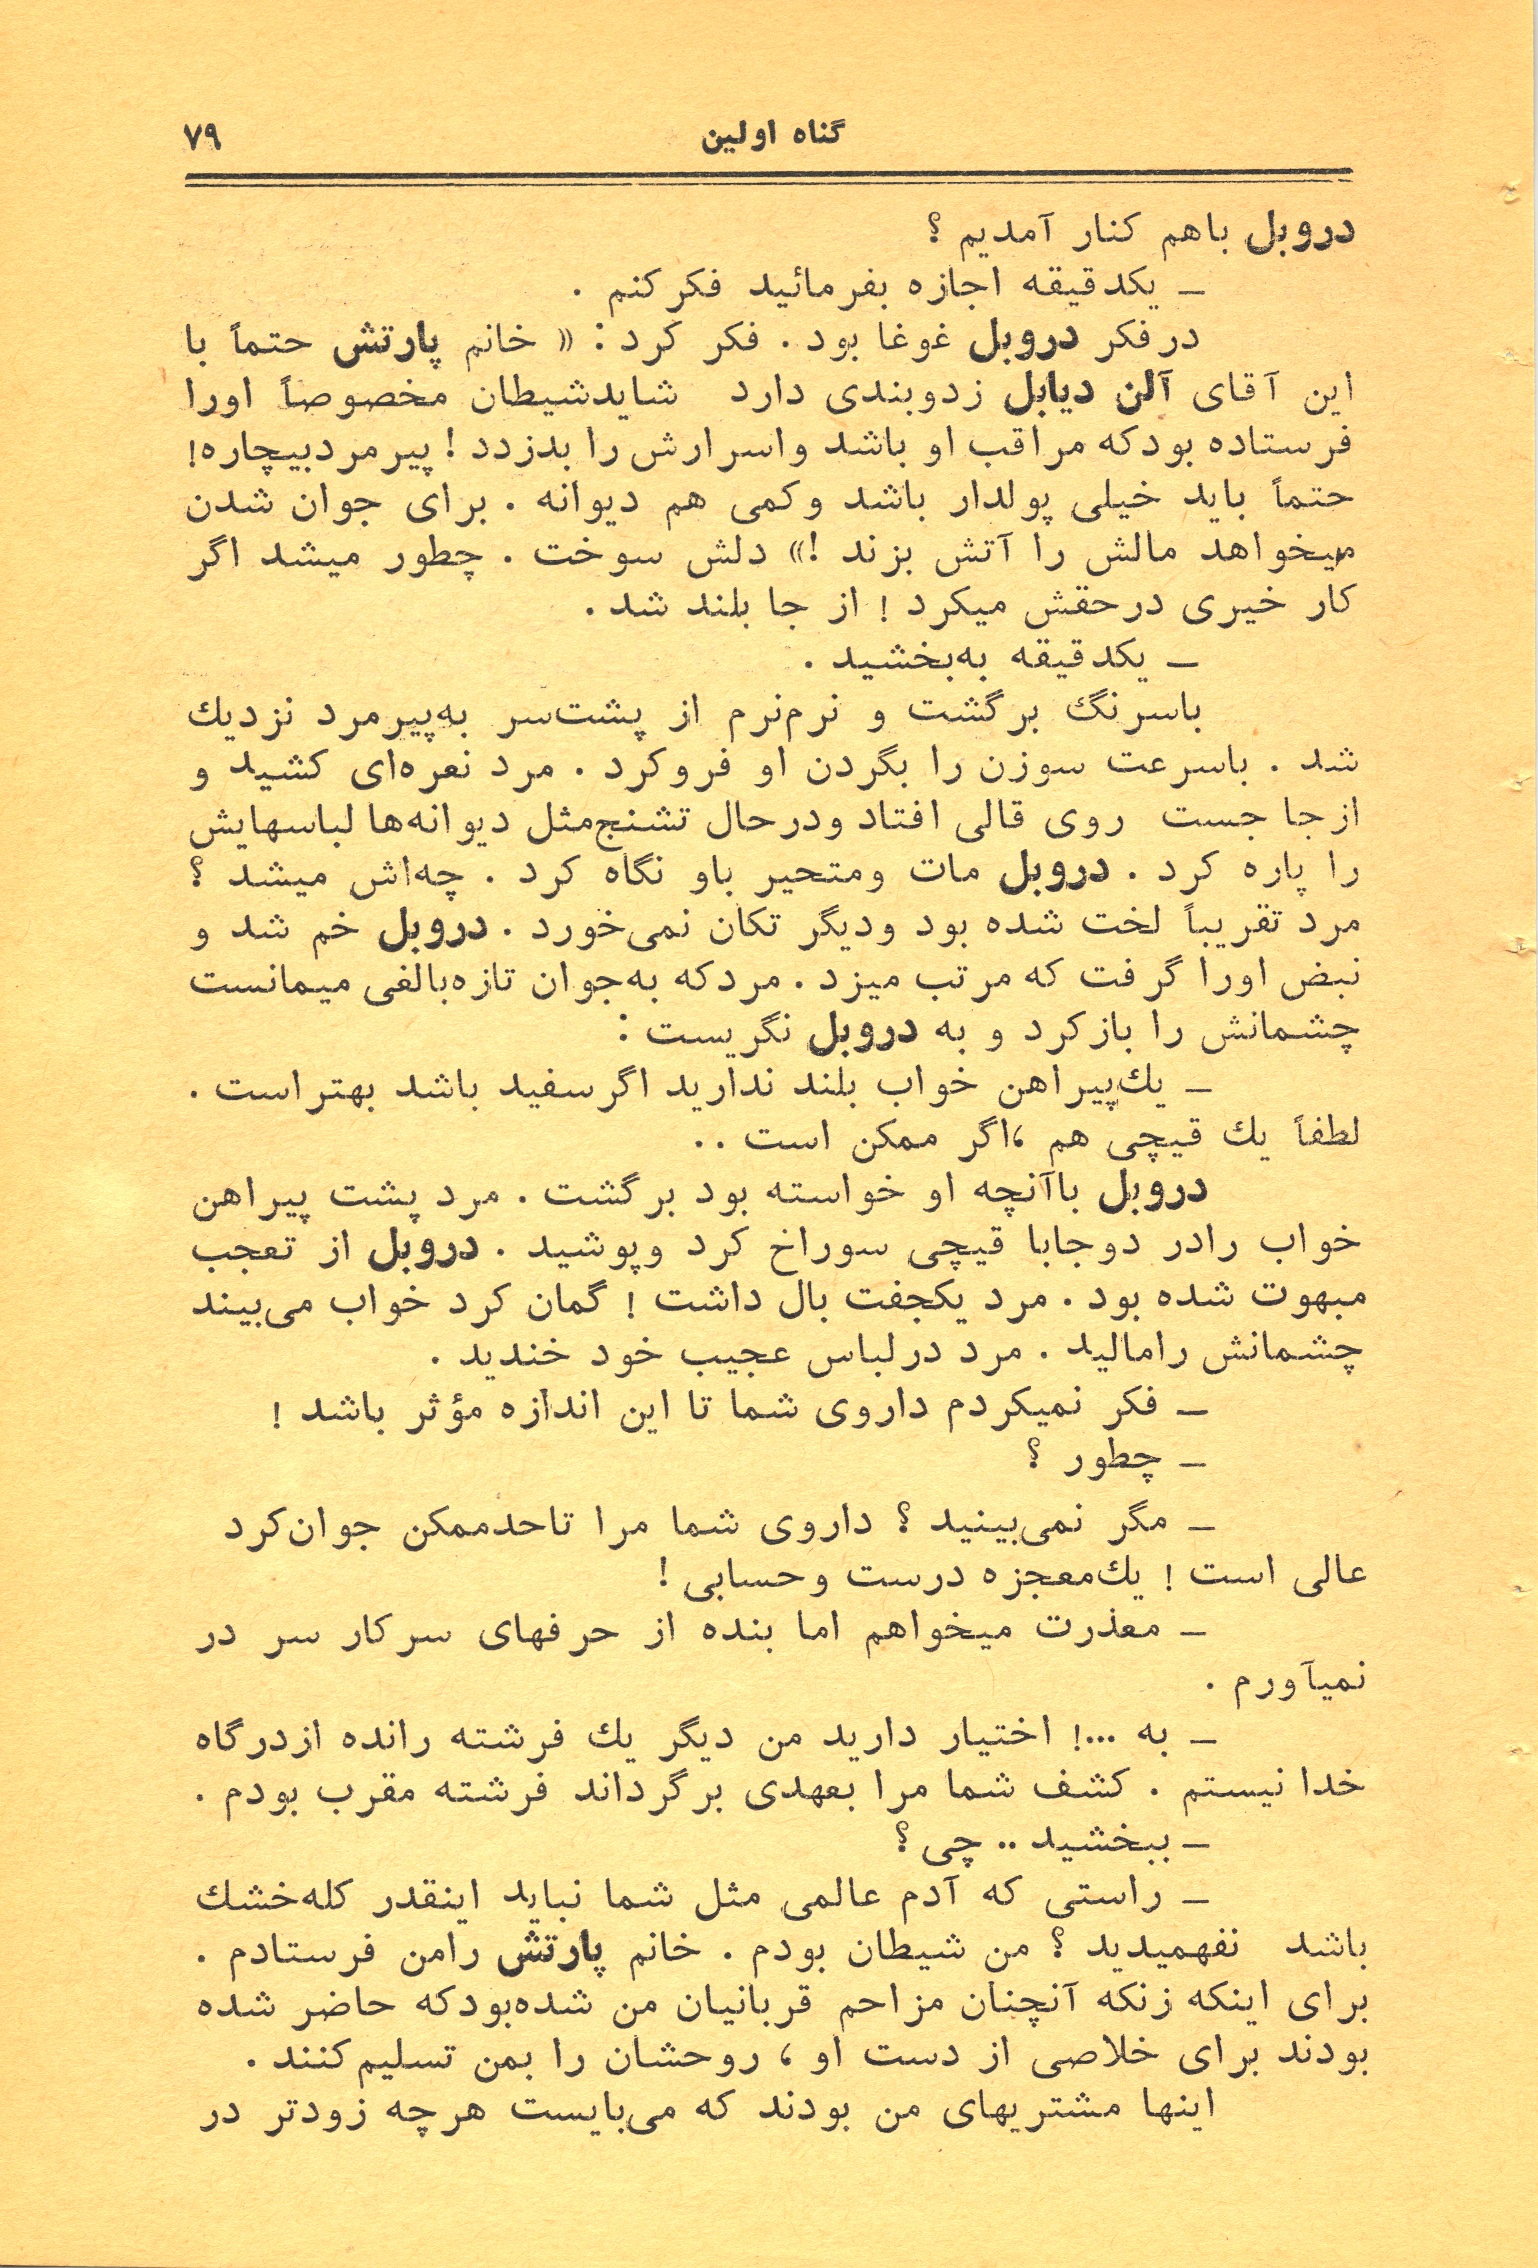 گناه اولین
۷۹
دروبل باهم کنار آمدیم ؟
ـ یکدقیقه اجازه بفرمائید فکرکنم .
درفکر دروبل غوغا بود . فکر کرد : « خانم پارتش حتماً با
این آقای آلن دیابل زدوبندی دارد شایدشیطان مخصوصاً اورا
فرستاده بودکه مراقب او باشد واسرارش را بدزدد ! پیرمردبیچاره!
حتماً باید خیلی پولدار باشد وکمی هم دیوانه . برای جوان شدن
میخواهد مالش را آتش بزند !» دلش سوخت . چطور میشد اگر
کار خیری درحقش میکرد ! از جا بلند شد .
ـ یکدقیقه به‌بخشید .
باسرنگ برگشت و نرم‌نرم از پشت‌سر به‌پیرمرد نزدیك
شد . باسرعت سوزن را بگردن او فروکرد . مرد نعره‌ای کشید و
ازجا جست روی قالی افتاد ودرحال تشنج‌مثل دیوانه‌ها لباسهایش
را پاره کرد . دروبل مات ومتحیر باو نگاه کرد . چه‌اش میشد ؟
مرد تقریباً لخت شده بود ودیگر تکان نمی‌خورد . دروبل خم شد و
نبض اورا گرفت که مرتب میزد . مردکه به‌جوان تازه‌بالغی میمانست
چشمانش را بازکرد و به دروبل نگریست :
ـ یك‌پیراهن خواب بلند ندارید اگرسفید باشد بهتراست .
لطفاً یك قیچی هم ،اگر ممکن است ..
دروبل باآنچه او خواسته بود برگشت . مرد پشت پیراهن
خواب رادر دوجابا قیچی سوراخ کرد وپوشید . دروبل از تعجب
مبهوت شده بود . مرد یکجفت بال داشت ! گمان کرد خواب می‌بیند
چشمانش رامالید . مرد درلباس عجیب خود خندید .
ـ فکر نمیکردم داروی شما تا این اندازه مؤثر باشد !
ـ چطور ؟
ـ مگر نمی‌بینید ؟ داروی شما مرا تاحدممکن جوان‌کرد
عالی است ! یك‌معجزه درست وحسابی !
ـ معذرت میخواهم اما بنده از حرفهای سرکار سر در
نمیآورم .
ـ به ...! اختیار دارید من دیگر یك فرشته رانده ازدرگاه
خدا نیستم . کشف شما مرا بعهدی برگرداند فرشته مقرب بودم .
ـ ببخشید .. چی ؟
ـ راستی که آدم عالمی مثل شما نباید اینقدر کله‌خشك
باشد نفهمیدید ؟ من شیطان بودم . خانم پارتش رامن فرستادم .
برای اینکه زنکه آنچنان مزاحم قربانیان من شده‌بودکه حاضر شده
بودند برای خلاصی از دست او ، روحشان را بمن تسلیم‌کنند .
اینها مشتریهای من بودند که می‌بایست هرچه زودتر در